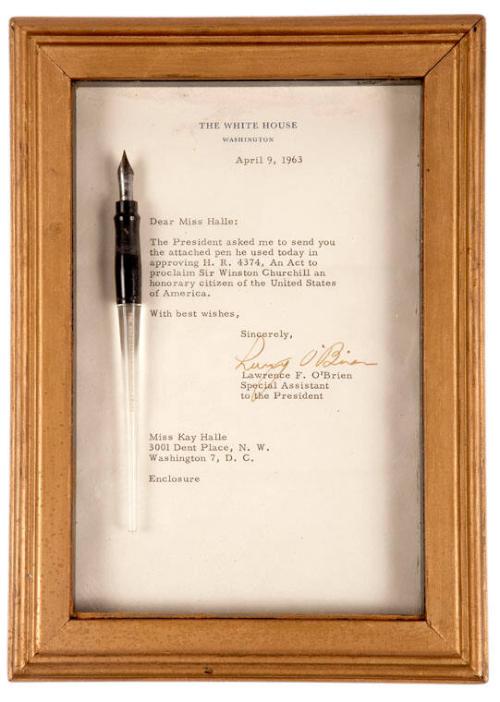 THE WHITE HOUSE
WASHINGTON
April 9, 1963
Dear Miss Halle:
The President asked me to send you
the attached pen he used today in
approving H. R. 4374, An Act to
proclaim Sir Winston Churchill an
honorary citizen of the United States
of America.
With best wishes,
Sincerely,
Larry O'Brien
Lawrence F. O'Brien
Special Assistant
to the President
Miss Kay Halle
3001 Dent Place, N. W.
Washington 7, D. C.
Enclosure